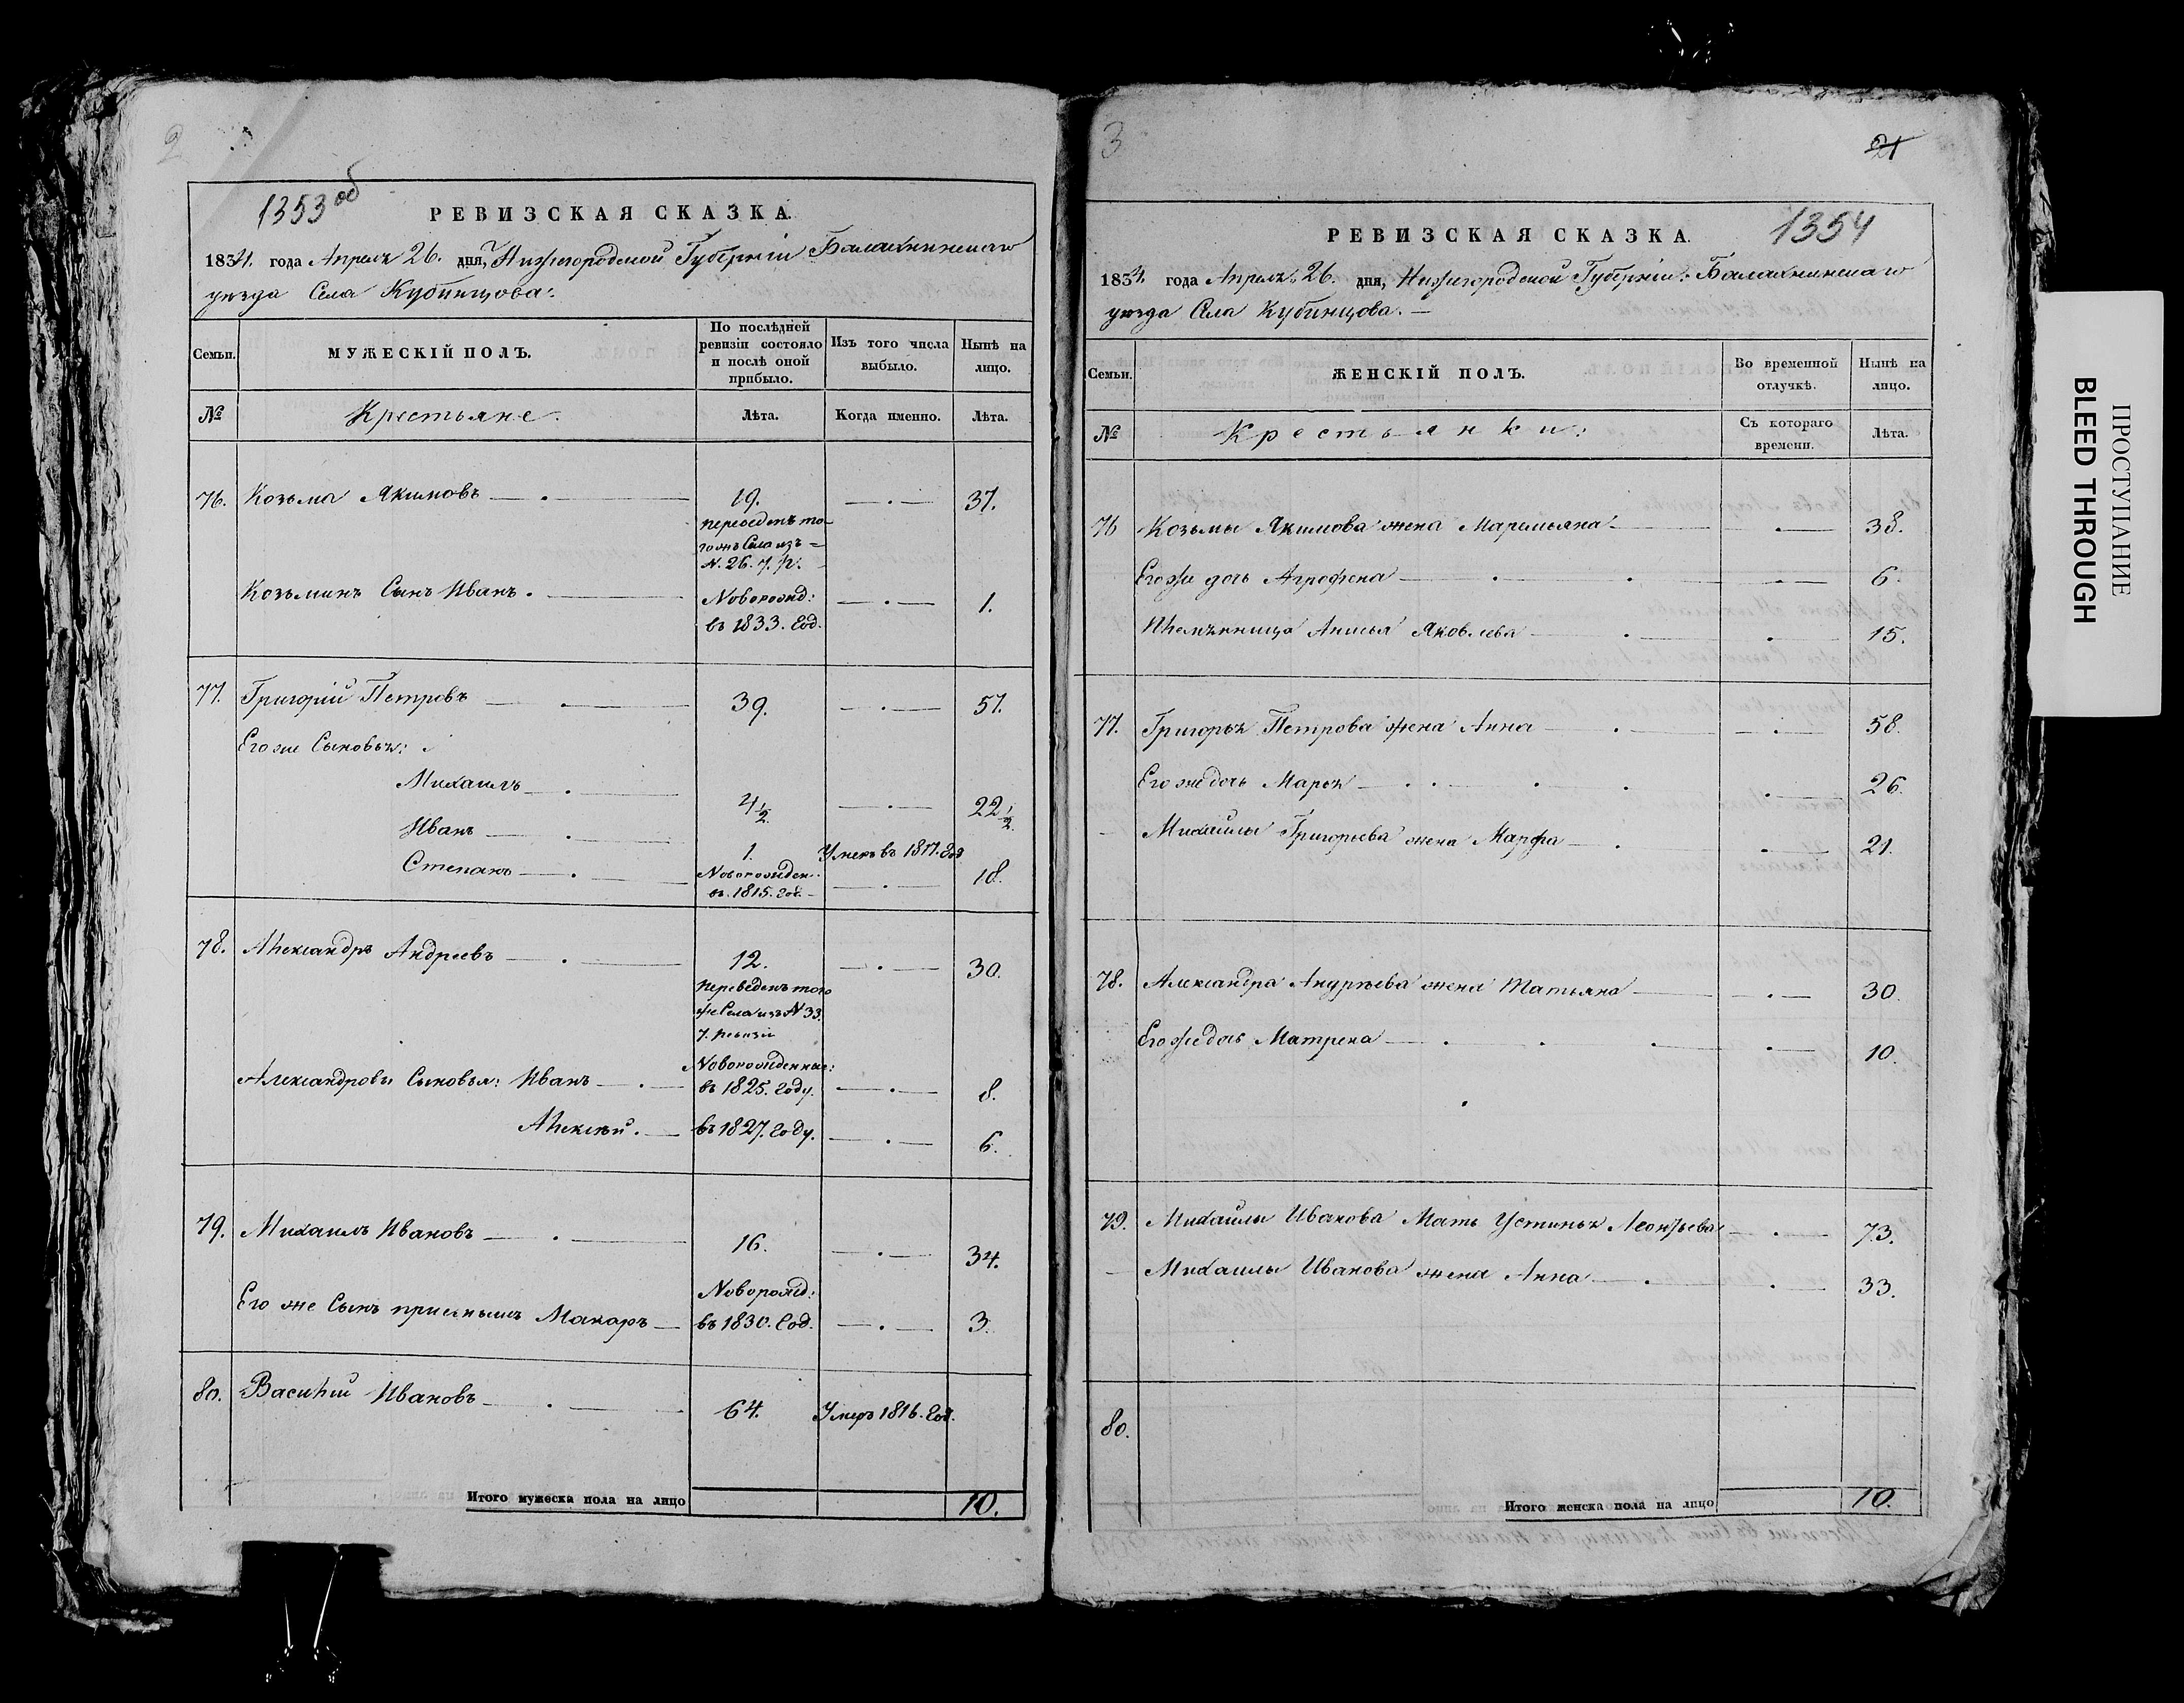 2
1353 об
РЕВИЗСКАЯ СКАЗКА.
1834. года Апрелъ 26. дня, Нижегородской Губерніи Балахнинскаго
уезда Села Кубинцова:
Семьи.
МУЖЕСКІЙ ПОЛЪ.
По послѣдней ревизіи состояло и послѣ оной прибыло.
Изъ того числа выбыло.
Нынѣ на лицо.
№
Крестьяне.
Лѣта.
Когда именно.
Лѣта.
76. Козьма Якимовъ 19. 37.
переведенъ то-
гожъ Села изъ
N. 26. 7. р.
Козьминъ Сынъ Иванъ. Новорожд: 1.
въ 1833. год.
77. Григорій Петровъ 39. 57.
Его же Сыновья:
Михаилъ 4 1/2. 22 1/2.
Иванъ 1. Умеръ въ 1817. год
Степанъ Новорожден. 18.
въ. 1815. год.
78. Александръ Андреевъ 12. 30.
переведенъ того
же Села изъ N 33.
7. ревизіи
Новорожденные:
Александровы Сыновья: Иванъ въ 1825. году. 8.
Алексѣй. въ 1827. году. 6.
79. Михаилъ Ивановъ 16. 34.
Новорожд:
Его же Сынъ приемышъ Макаръ въ 1830. год. 3.
80. Василий Ивановъ 64. Умеръ 1816. год.
Итого мужеска пола на лицо 10.
3
21
1354
РЕВИЗСКАЯ СКАЗКА.
1834. года Апрелъ 26. дня, Нижегородской Губерніи: Балахнинскаго
уезда Села Кубинцова.
Семьи.
ЖЕНСКІЙ ПОЛЪ.
Во временной отлучкѣ.
Нынѣ на лицо.
№
Крестьянки:
Съ котораго времени.
Лѣта.
76 Козьмы Якимова жена Маремьяна 38.
Егоже дочь Агрофена 6.
Племянница Анисья Яковлева 15.
77. Григорья Петрова жена Анна 58.
Его же дочь Марья 26.
Михаилы Григорьева жена Марфа 21.
78. Александра Андрѣева жена Татьяна 30.
Его же дочь Матрена 10.
79. Михаилы Иванова Мать Устинья Леонтьева 73.
Михаилы Иванова жена Анна 33.
80.
Итого женска пола на лицо 10.
ПРОСТУПАНИЕ
BLEED THROUGH